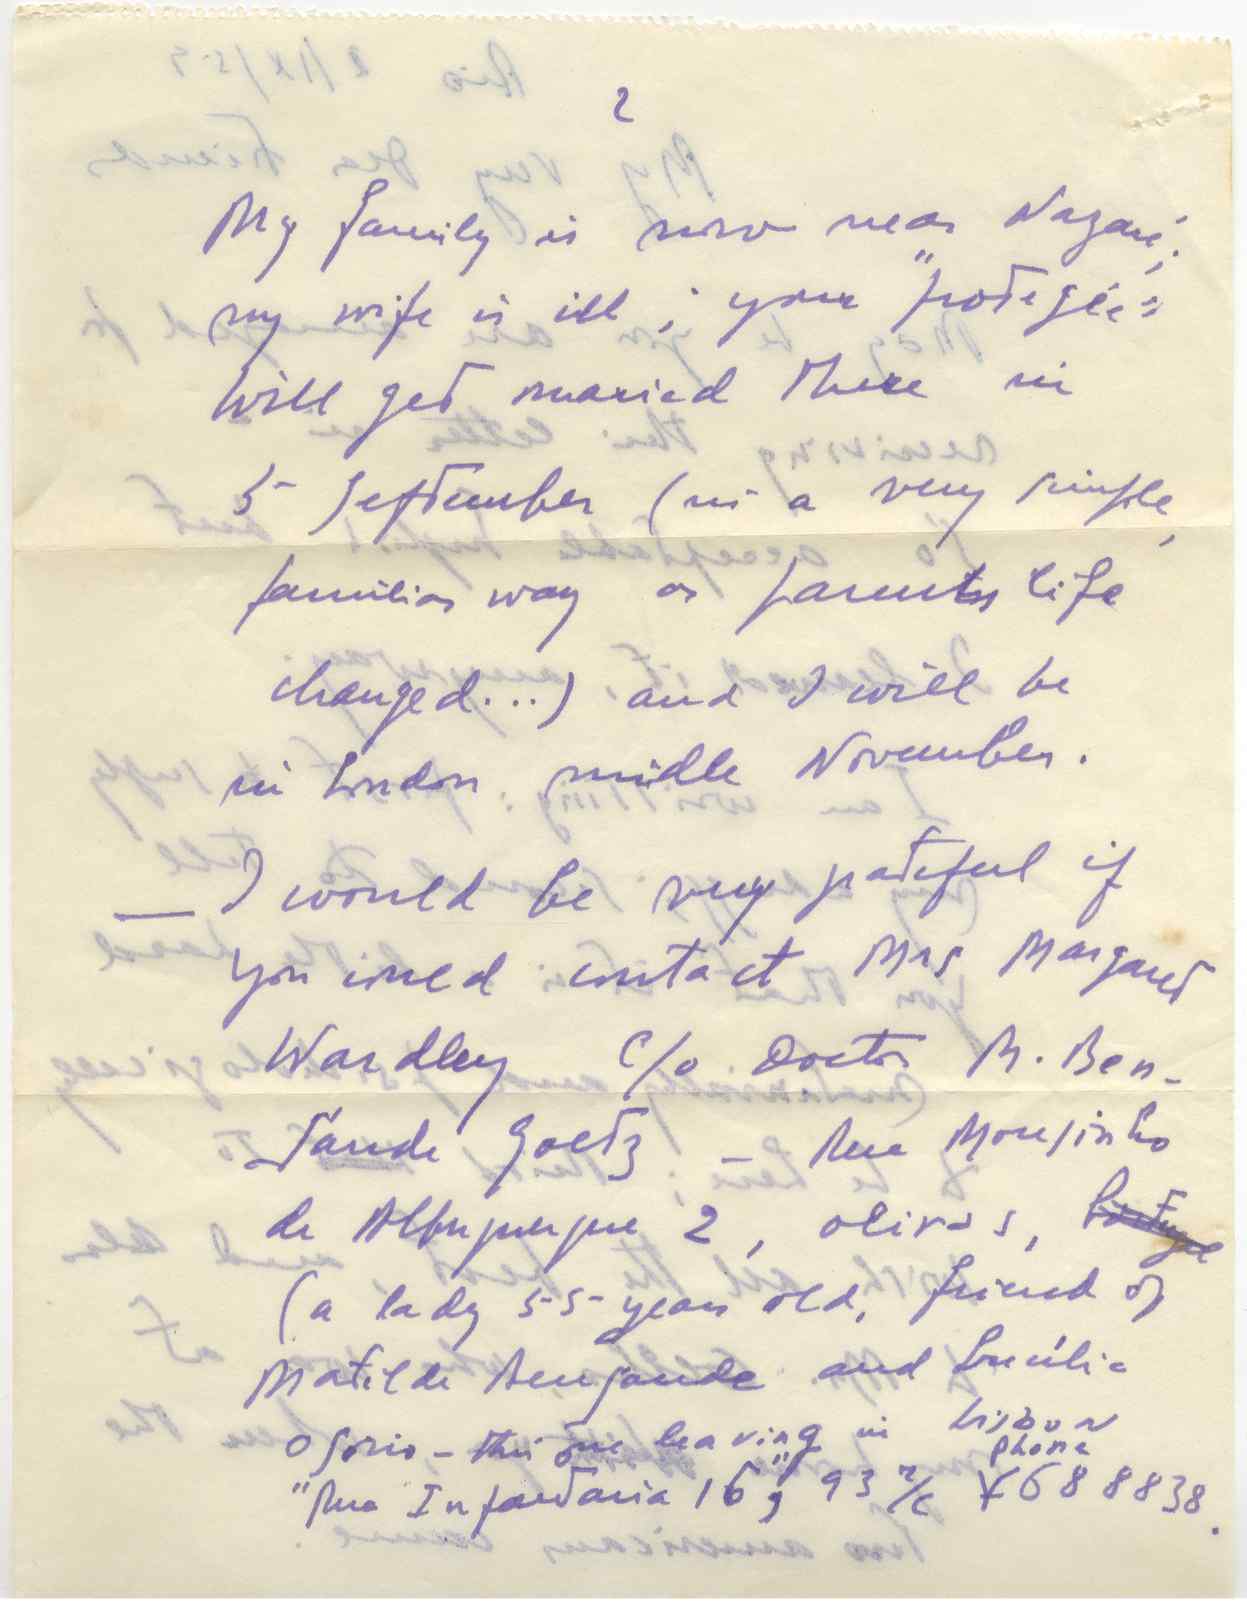 2
My family is now near Nazaré,
my wife is ill; your "protegée"
will get maried there in
5 September (in a very simple,
familiar way as parents life
changed...) and I will be
in London middle November.
— I would be very grateful if
you could contact Mrs Margaret
Wardley c/o Doctor M. Ben-
saude Goetz — Rua Mousinho
de Albuquerque 2, Olivas,
(a lady 55 years old, friend of
Matilde Bensaude and Lucilia
Osorio — this one leaving in Lisbon
"Rua Infantaria 16", 93 r/c phone 688838.